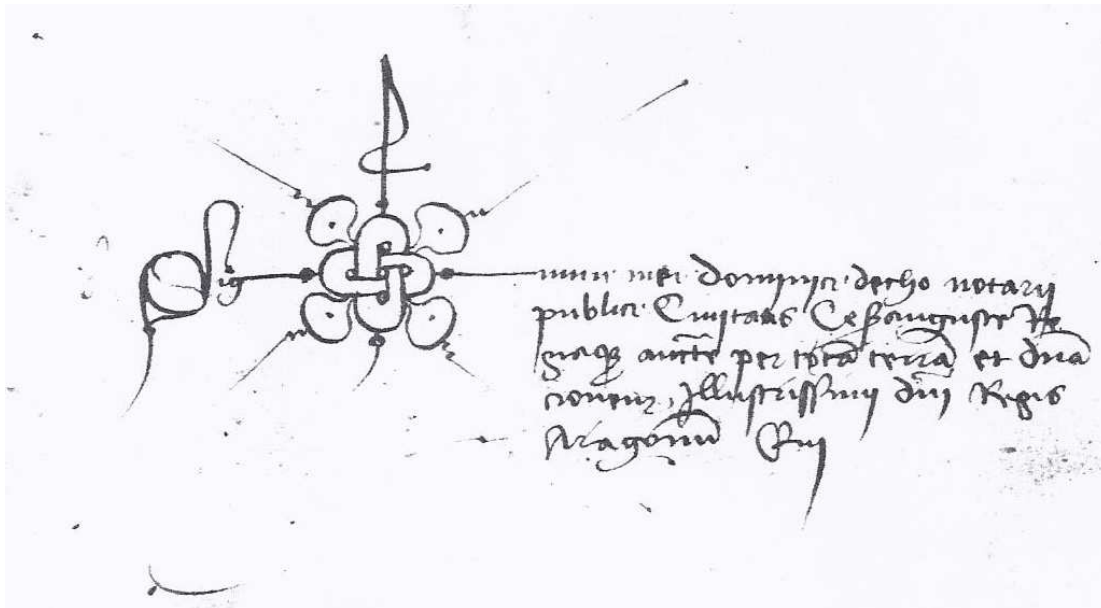 Sig num mei dominici decho notarii
publici Civitatis Cesarauguste Re
giaq auctte per totā terrā et dnā
cionem Illustrissimi dni Regis
Aragonū Qui